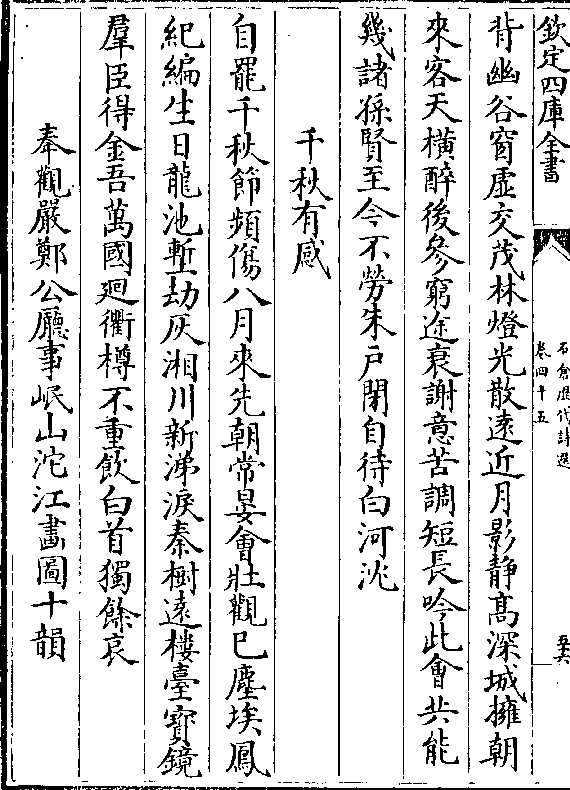 欽定四庫全書
石倉歴代詩選
卷四十五
五六
背幽谷窗虚交茂林燈光散遠近月影靜髙深城擁朝
來客天橫醉後參窮途衰謝意苦調短長吟此㑹共能
幾諸孫賢至今不勞朱戸閉自待白河沈
千秋有感
自罷千秋節頻傷八月來先朝常宴㑹壯觀已塵埃鳳
紀編生日龍池塹劫灰湘川新涕淚秦樹逺樓臺寳鏡
羣臣得金吾萬國廻衢樽不重飲白首獨餘哀
奉觀嚴鄭公廳事岷山沱江畫圖十韻